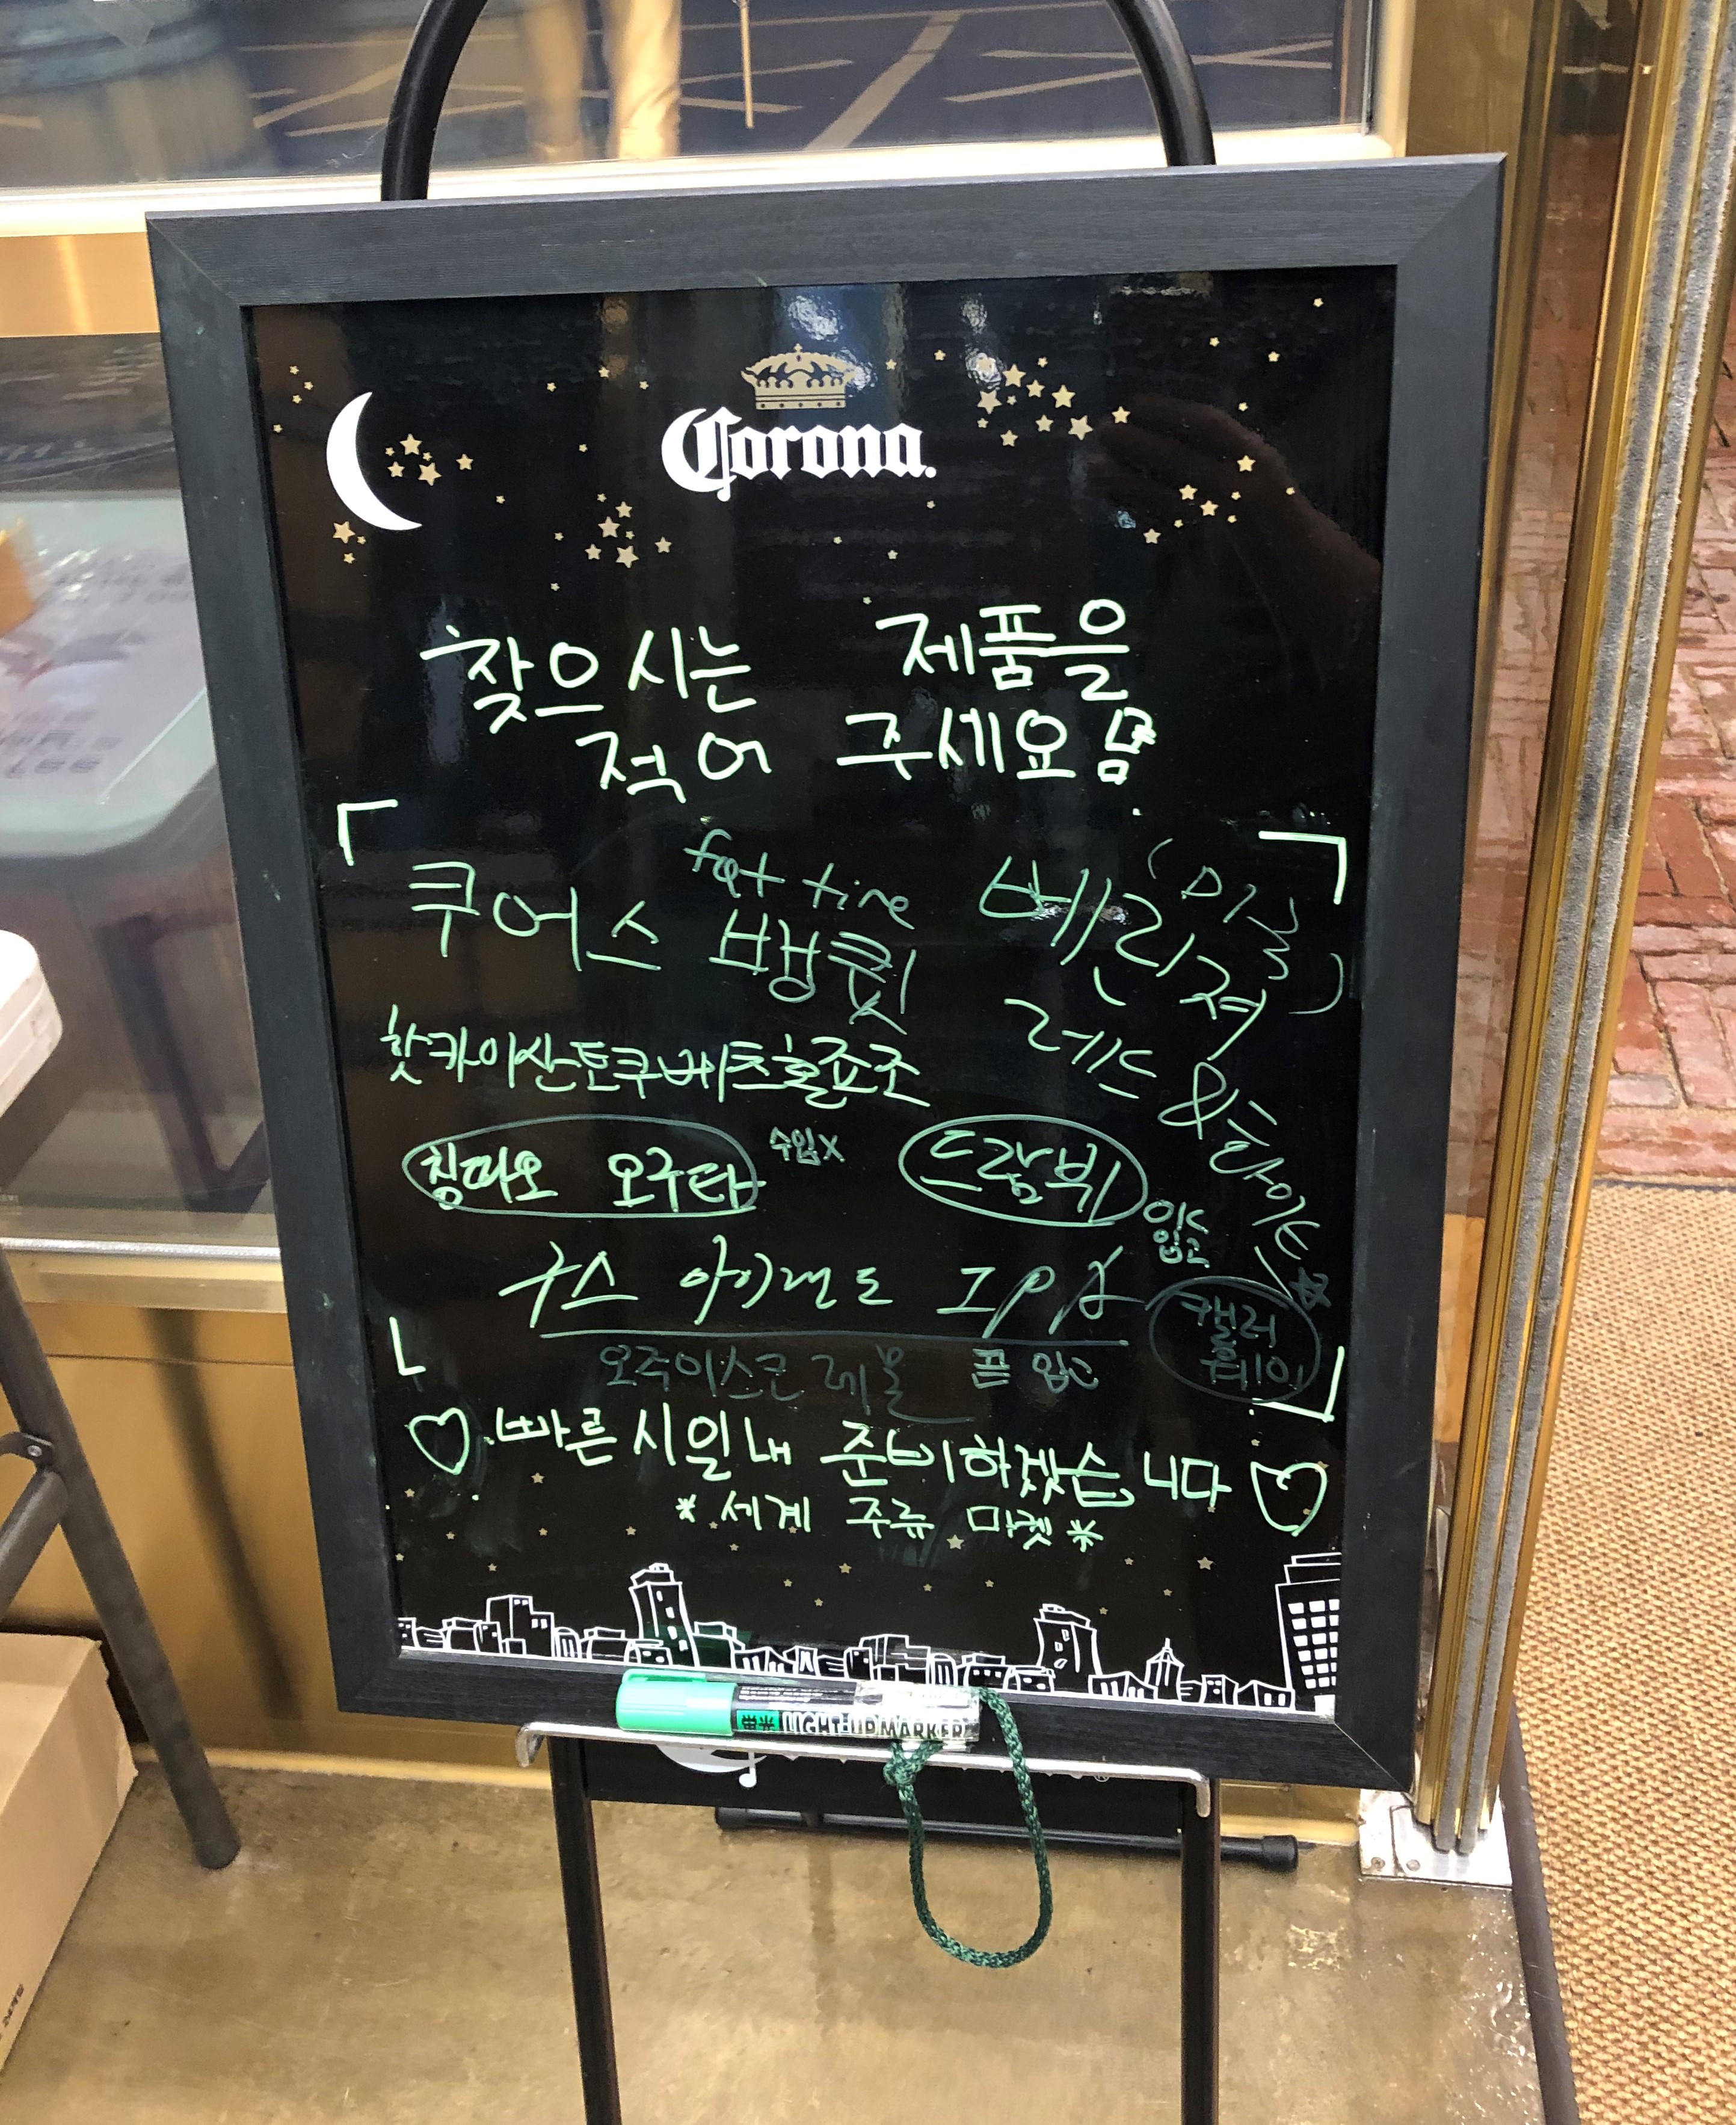 Corona
찾으시는 제품을
적어 주세요
fat tire
쿠어스 뱅큇
베린저
레드 &
핫카이산토쿠베츠혼죠조
칭따오 오구타 수입X
드람뷔
입고
구스 아이랜드 IPA
캘러
웨이
오주이스킨 레몬 품 입고
빠른 시일내 준비하겠습니다
*세계 주류 마켓*
LIGHT-UP MARKER